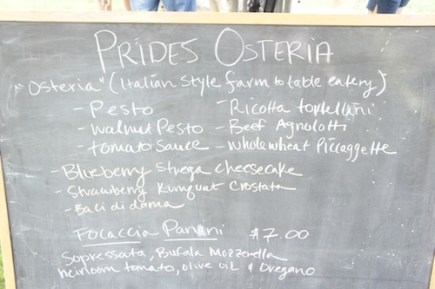 PRIDES OSTERIA
"Osteria" (Italian Style farm to table eatery)
- Pesto - Ricotta tortellini
- Walnut Pesto - Beef Agnolotti
- tomato Sauce - whole wheat Piccaggette
- Blueberry Strega cheesecake
- Strawberry Kumquat Crostata
- Baci di dama
Focaccia Panini $7.00
Sopressata, Bufala Mozzarella
heirloom tomato, olive oil & Oregano